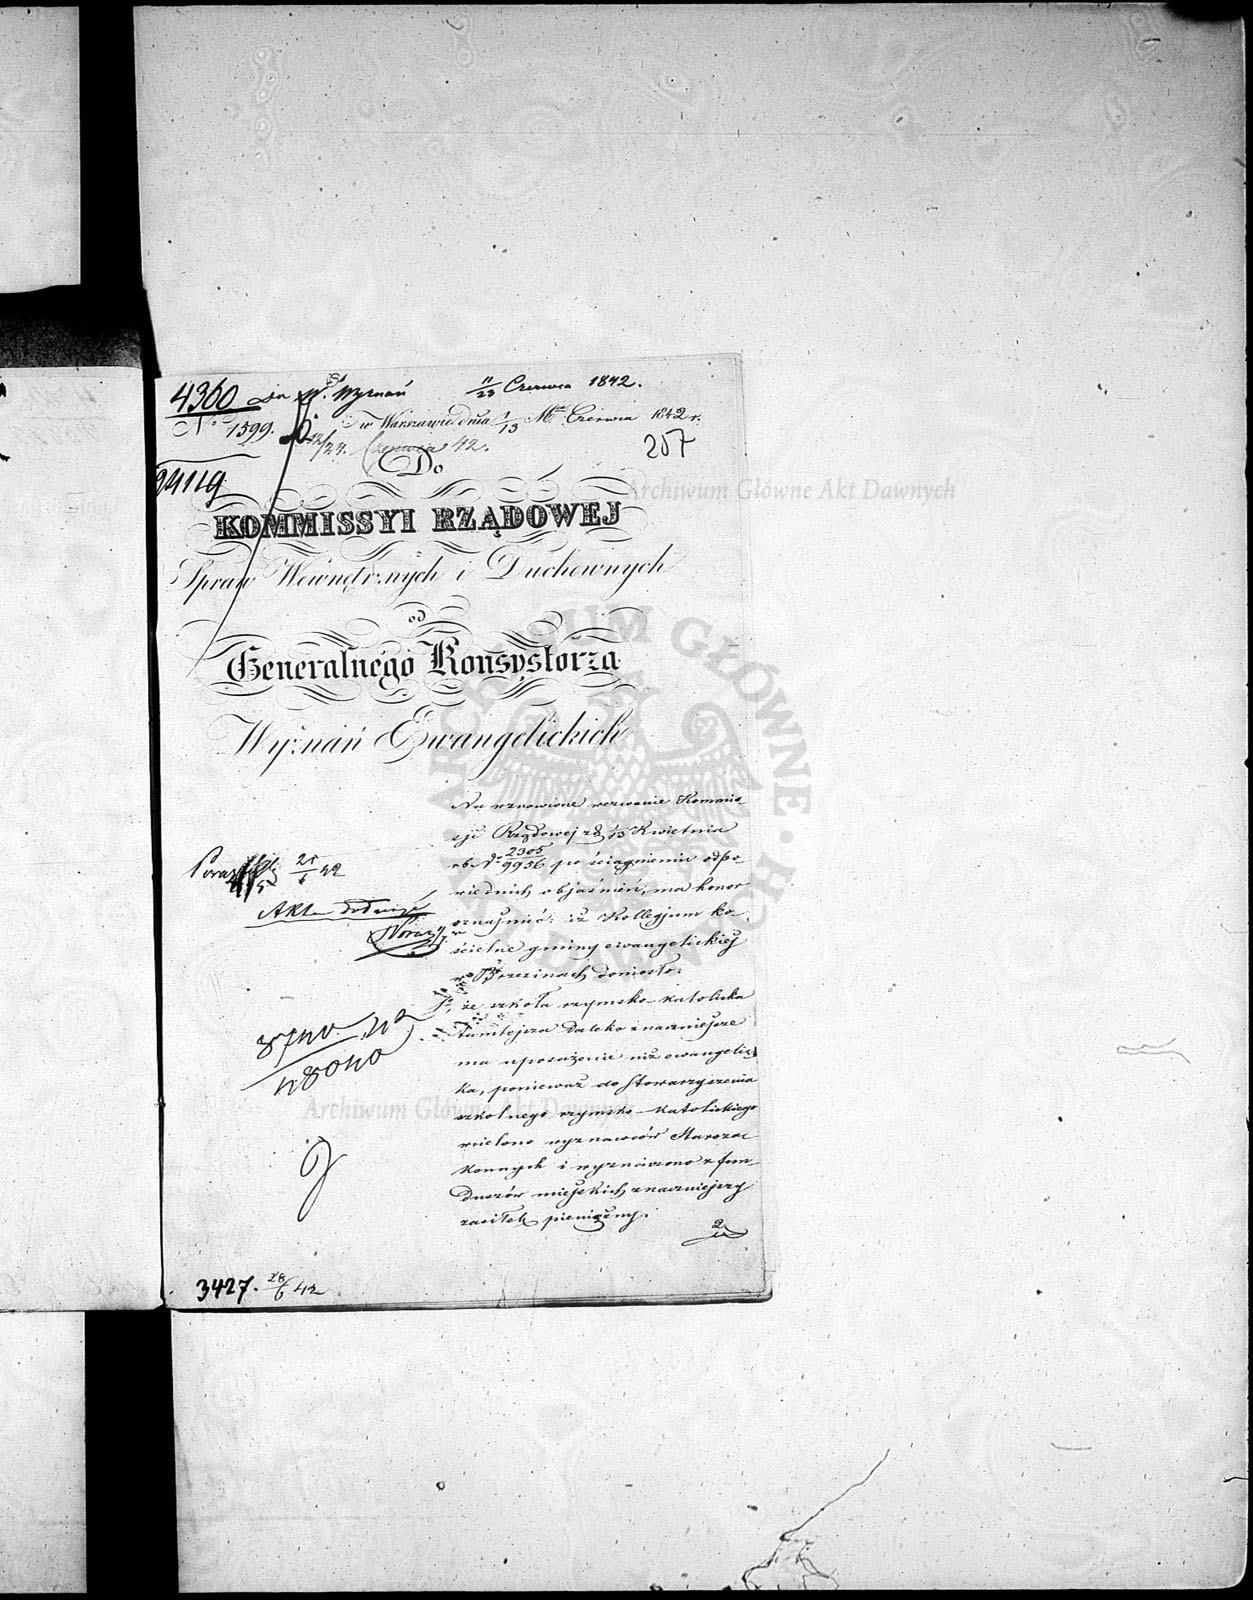 4360 W. Wyznań 11/23 Czerwca 1842.
No 1599. w Warszawie dnia 1/13 Mca Czerwca 1842 r.
12/24. Czerwca 42.
207
Do
24119
Archiwum Główne Akt Dawnych
KOMMISSYI RZĄDOWEJ
Spraw Wewnętrznych i Duchownych
od
Generalnego Konsystorza
Wyznań Ewangelickich
ARCHIWUM GŁÓWNE AKT DAWNYCH
Na wznowione wezwanie Kommis-
syi Rządowej z d. 1/13 Kwietnia
r b. No 2305/9956 po ściągnieniu odpo-
wiednich objaśnień, ma honor
oznajmić; iż Kollegjum ko-
ścielne gminy ewangelickiej
w Brzezinach doniosło:
1o, że szkoła rzymsko-katolicka
tamtejsza daleko znaczniejsze
ma uposażenie niż ewangelic-
ka, ponieważ do Stowarzyszenia
szkolnego rzymsko-katolickiego
wcielono wyznawców Staroza-
konnych i wyznaczono z fun-
duszów miejskich znaczniejszy
zasiłek pieniężny.
2o
21/6 42
Akta
Archiwum Główne Akt Dawnych
3427. 28/6 42